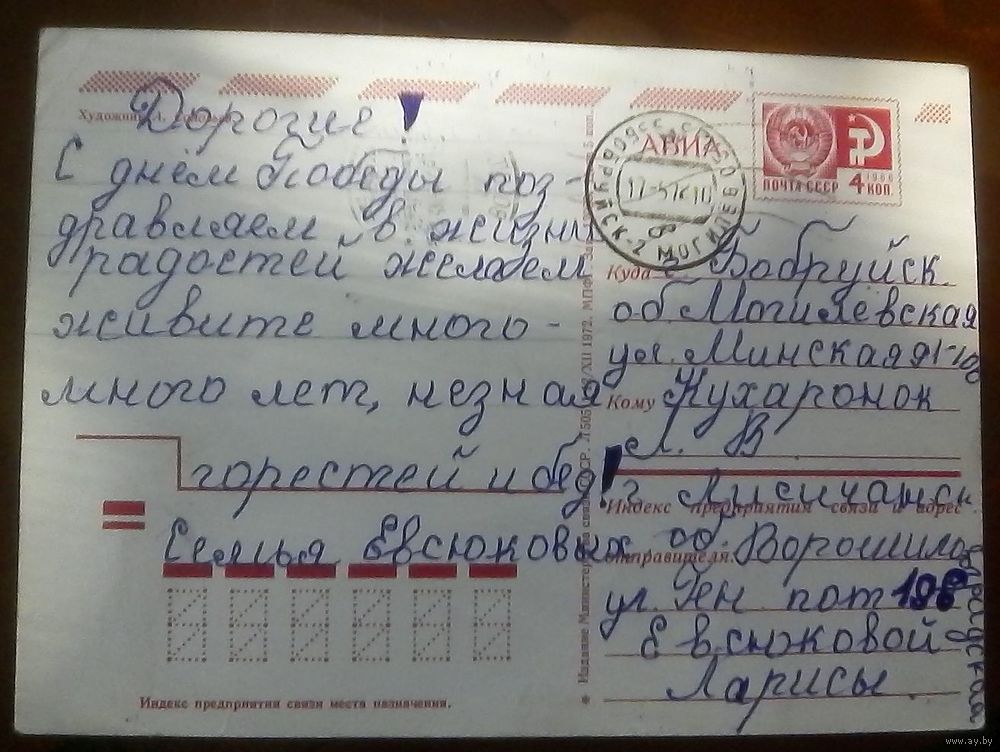 Дорогие!
С днём Победы поз-
дравляем в жизни
радостей желаем
живите много-
много лет, незная
горестей и бед!
Семья Евсюковых
АВИА
ПОЧТА СССР 4 КОП.
1966
МОГИЛЕВ
Куда г. Бобруйск.
об. Могилевская
ул. Минская
Кому Кухаронок
Л. В
Индекс предприятия связи и адрес
отправителя.
г Лисичанск
об. Ворошиловградская
ул. Ген. пот 198
Евсюковой
Ларисы.
Индекс предприятия связи места назначения.
www.ay.by